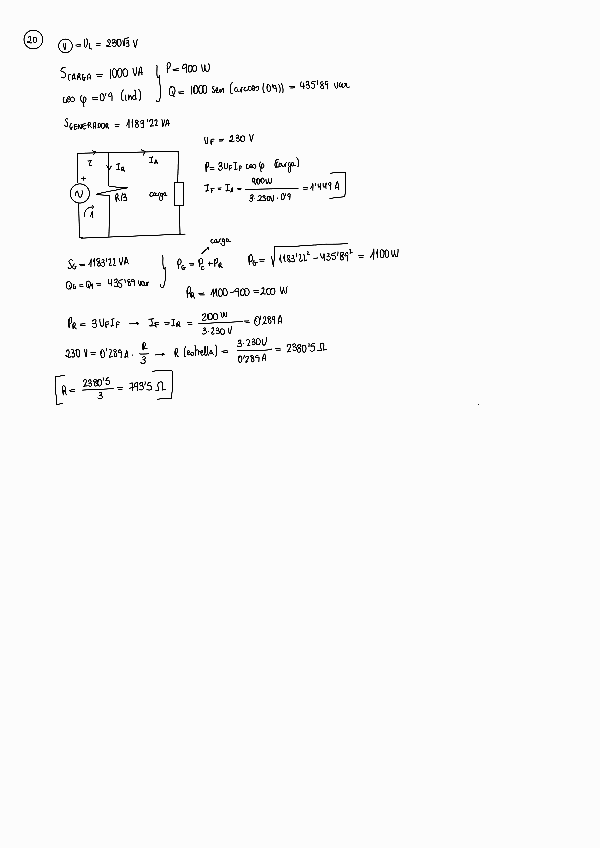 20
V = U_L = 230√3 V
S_CARGA = 1000 VA } P = 900 W
cos φ = 0'9 (ind) } Q = 1000 sen (arccos (0'9)) = 435'89 var
S_GENERADOR = 1183'22 VA
U_F = 230 V
P = 3 U_F I_F cos φ (carga)
I_F = I_A = 900W / 3·230V·0'9 = 1'449 A
I I_R I_A
+ R/3 carga
1
S_G = 1183'22 VA } P_G = P_C + P_R P_G = √(1183'22² − 435'89²) = 1100 W
carga
Q_G = Q_A = 435'89 var
P_R = 1100 − 900 = 200 W
P_R = 3 U_F I_F → I_F = I_R = 200 W / 3·230 V = 0'289 A
230 V = 0'289 A · R/3 → R (estrella) = 3·230V / 0'289A = 2380'5 Ω
R = 2380'5 / 3 = 793'5 Ω